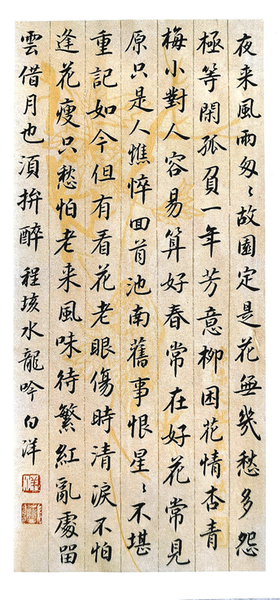 夜来風雨匆〻故園定是花無幾愁多怨
極等閑孤負一年芳意柳困花情杏青
梅小對人容易算好春常在好花常見
原只是人憔悴回首池南舊事恨星〻不堪
重記如今但有看花老眼傷時清淚不怕
逢花瘦只愁怕老来風味待繁紅亂處留
雲借月也須拚醉 程垓水龍吟 白洋